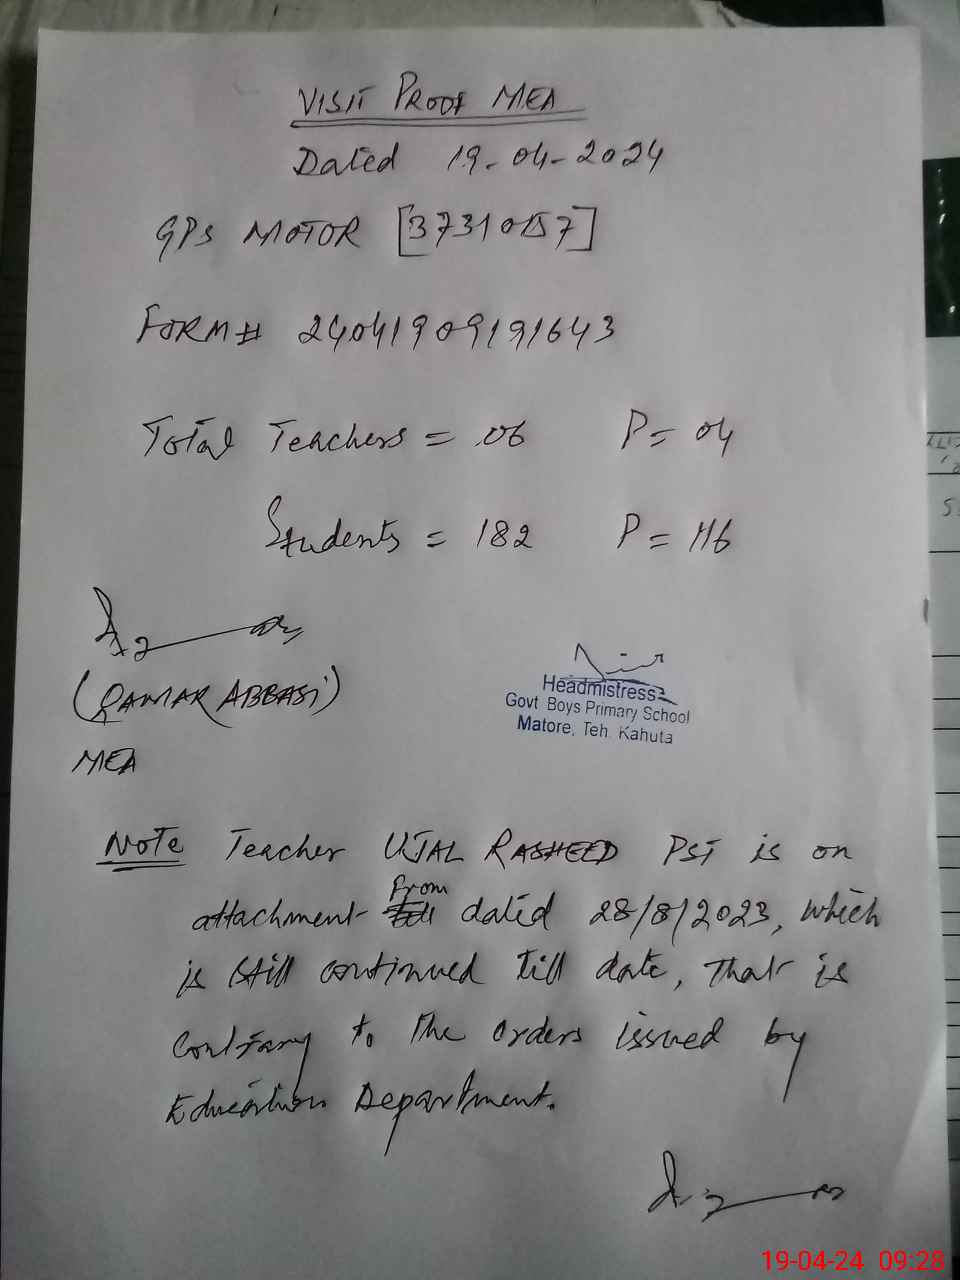 VISIT PROOF MEA
Dated 19-04-2024
GPS MOTOR [37310157]
FORM# 24041909191643
Total Teachers = 06 P= 04
Students = 182 P= 116
(QAMAR ABBASI)
MEA
Headmistress
Govt Boys Primary School
Matore, Teh. Kahuta
Note Teacher UJAL RASHEED PST is on
attachment From dated 28/8/2023, which
is still continued till date, that is
contrary to the orders issued by
Education Department.
19-04-24 09:28